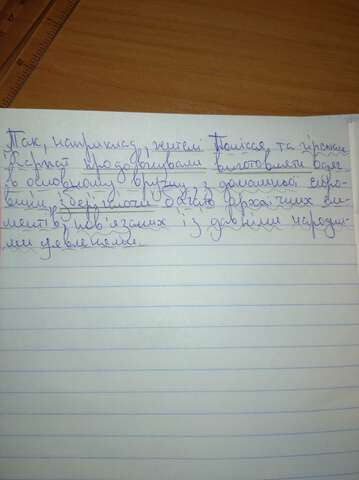 Так, наприклад, жителі Полісся та гірських
Карпат продовжували виготовляти одяг
в основному вручну, з домашньої сиро-
вини, зберігаючи багато архаїчних еле-
ментів, пов'язаних із давніми народни-
ми уявленями.